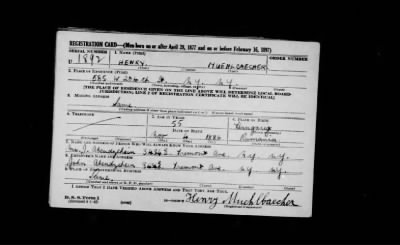 REGISTRATION CARD—(Men born on or after April 28, 1877 and on or before February 16, 1897)
SERIAL NUMBER 1. NAME (Print) ORDER NUMBER
U 1892 HENRY MUEHLBAECHER
2. PLACE OF RESIDENCE (Print)
585 W 204th St. N.Y. N.Y.
[THE PLACE OF RESIDENCE GIVEN ON THE LINE ABOVE WILL DETERMINE LOCAL BOARD
JURISDICTION; LINE 2 OF REGISTRATION CERTIFICATE WILL BE IDENTICAL]
3. MAILING ADDRESS
Same
4. TELEPHONE 5. AGE IN YEARS 6. PLACE OF BIRTH
55
DATE OF BIRTH
Nov 1886
7. NAME AND ADDRESS OF PERSON WHO WILL ALWAYS KNOW YOUR ADDRESS
Tremont Ave. N.Y. N.Y.
8. EMPLOYER'S NAME AND ADDRESS
John Tremont Ave. N.Y. N.Y.
9. PLACE OF EMPLOYMENT OR BUSINESS
Same
I AFFIRM THAT I HAVE VERIFIED ABOVE ANSWERS AND THAT THEY ARE TRUE.
D. S. S. Form 1
Henry Muehlbaecher